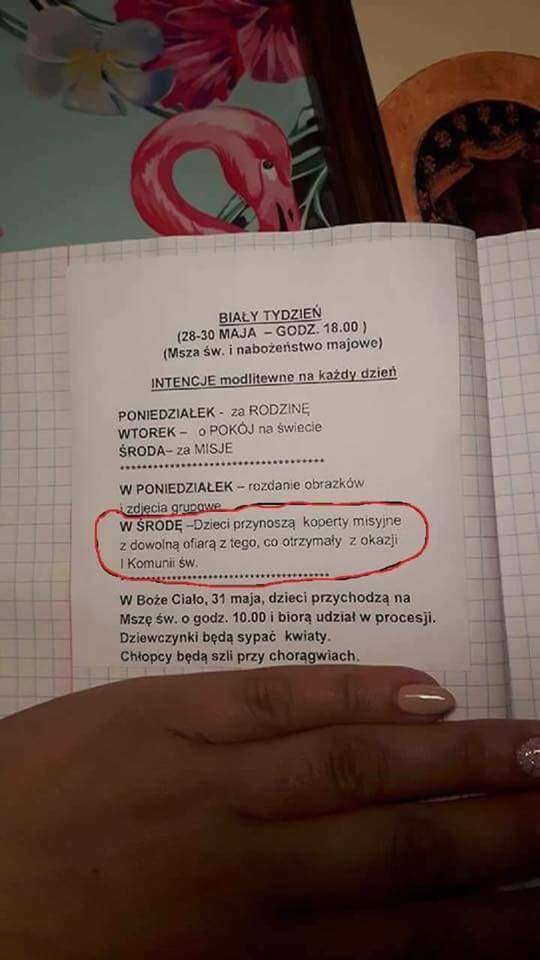 BIAŁY TYDZIEŃ
(28-30 MAJA – GODZ. 18.00 )
(Msza św. i nabożeństwo majowe)
INTENCJE modlitewne na każdy dzień
PONIEDZIAŁEK - za RODZINĘ
WTOREK – o POKÓJ na świecie
ŚRODA– za MISJE
************************************
W PONIEDZIAŁEK – rozdanie obrazków
i zdjęcia grupowe
W ŚRODĘ –Dzieci przynoszą koperty misyjne
z dowolną ofiarą z tego, co otrzymały z okazji
I Komunii św.
************************************
W Boże Ciało, 31 maja, dzieci przychodzą na
Mszę św. o godz. 10.00 i biorą udział w procesji.
Dziewczynki będą sypać kwiaty.
Chłopcy będą szli przy chorągwiach.